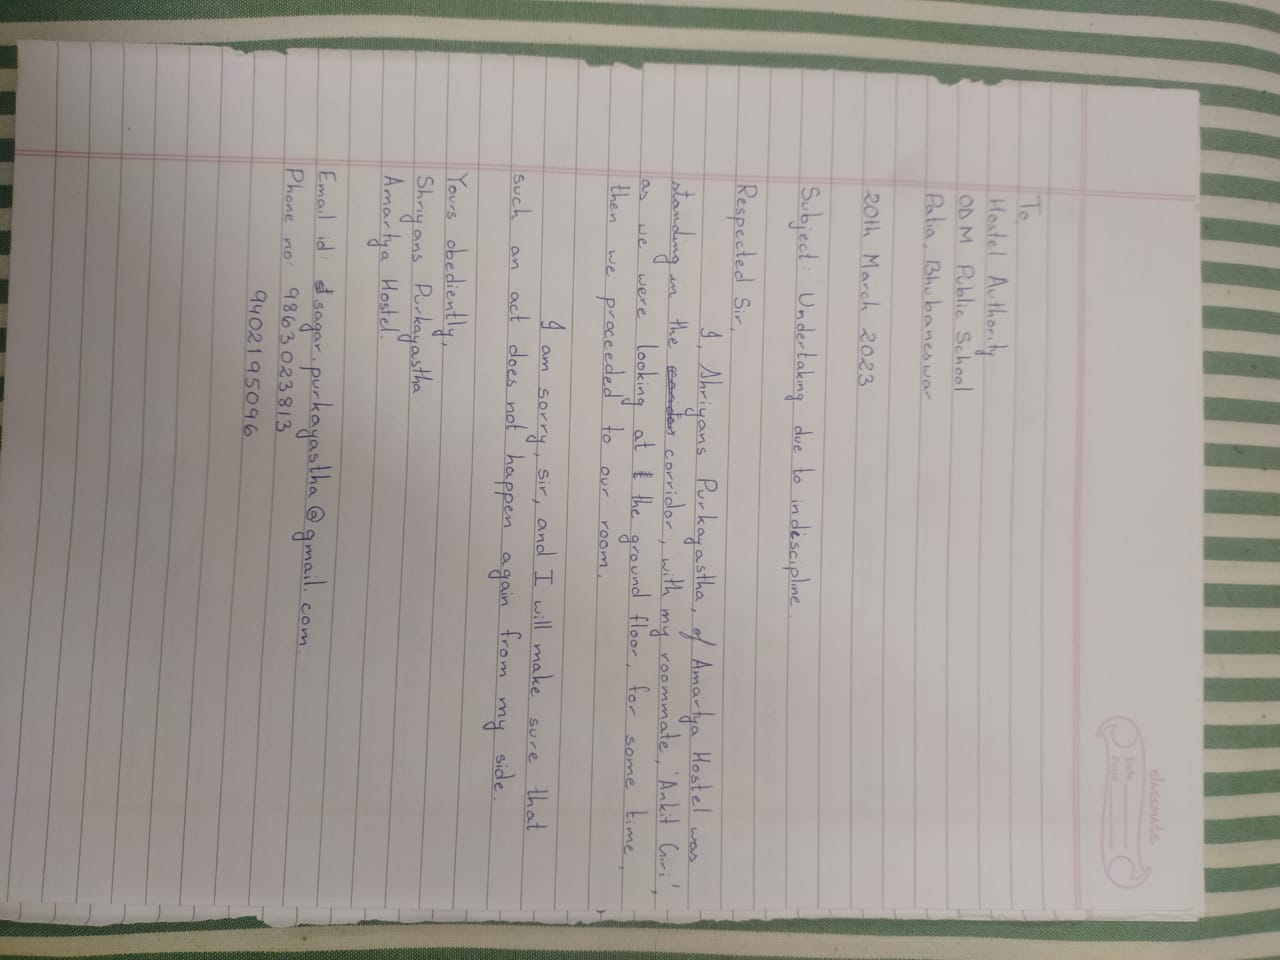 classmate
Date
Page
To,
Hostel Authority
ODM Public School
Patia, Bhubaneswar
20th March 2023
Subject: Undertaking due to indiscipline.
Respected Sir,
I, Shriyans Purkayastha, of Amartya Hostel was
standing in the corridor, with my roommate, 'Ankit Giri',
as we were looking at the ground floor, for some time,
then we proceeded to our room.
I am sorry, sir, and I will make sure that
such an act does not happen again from my side.
Yours obediently,
Shriyans Purkayastha
Amartya Hostel.
Email id: sagar.purkayastha@gmail.com.
Phone no: 9863023813
9402195096